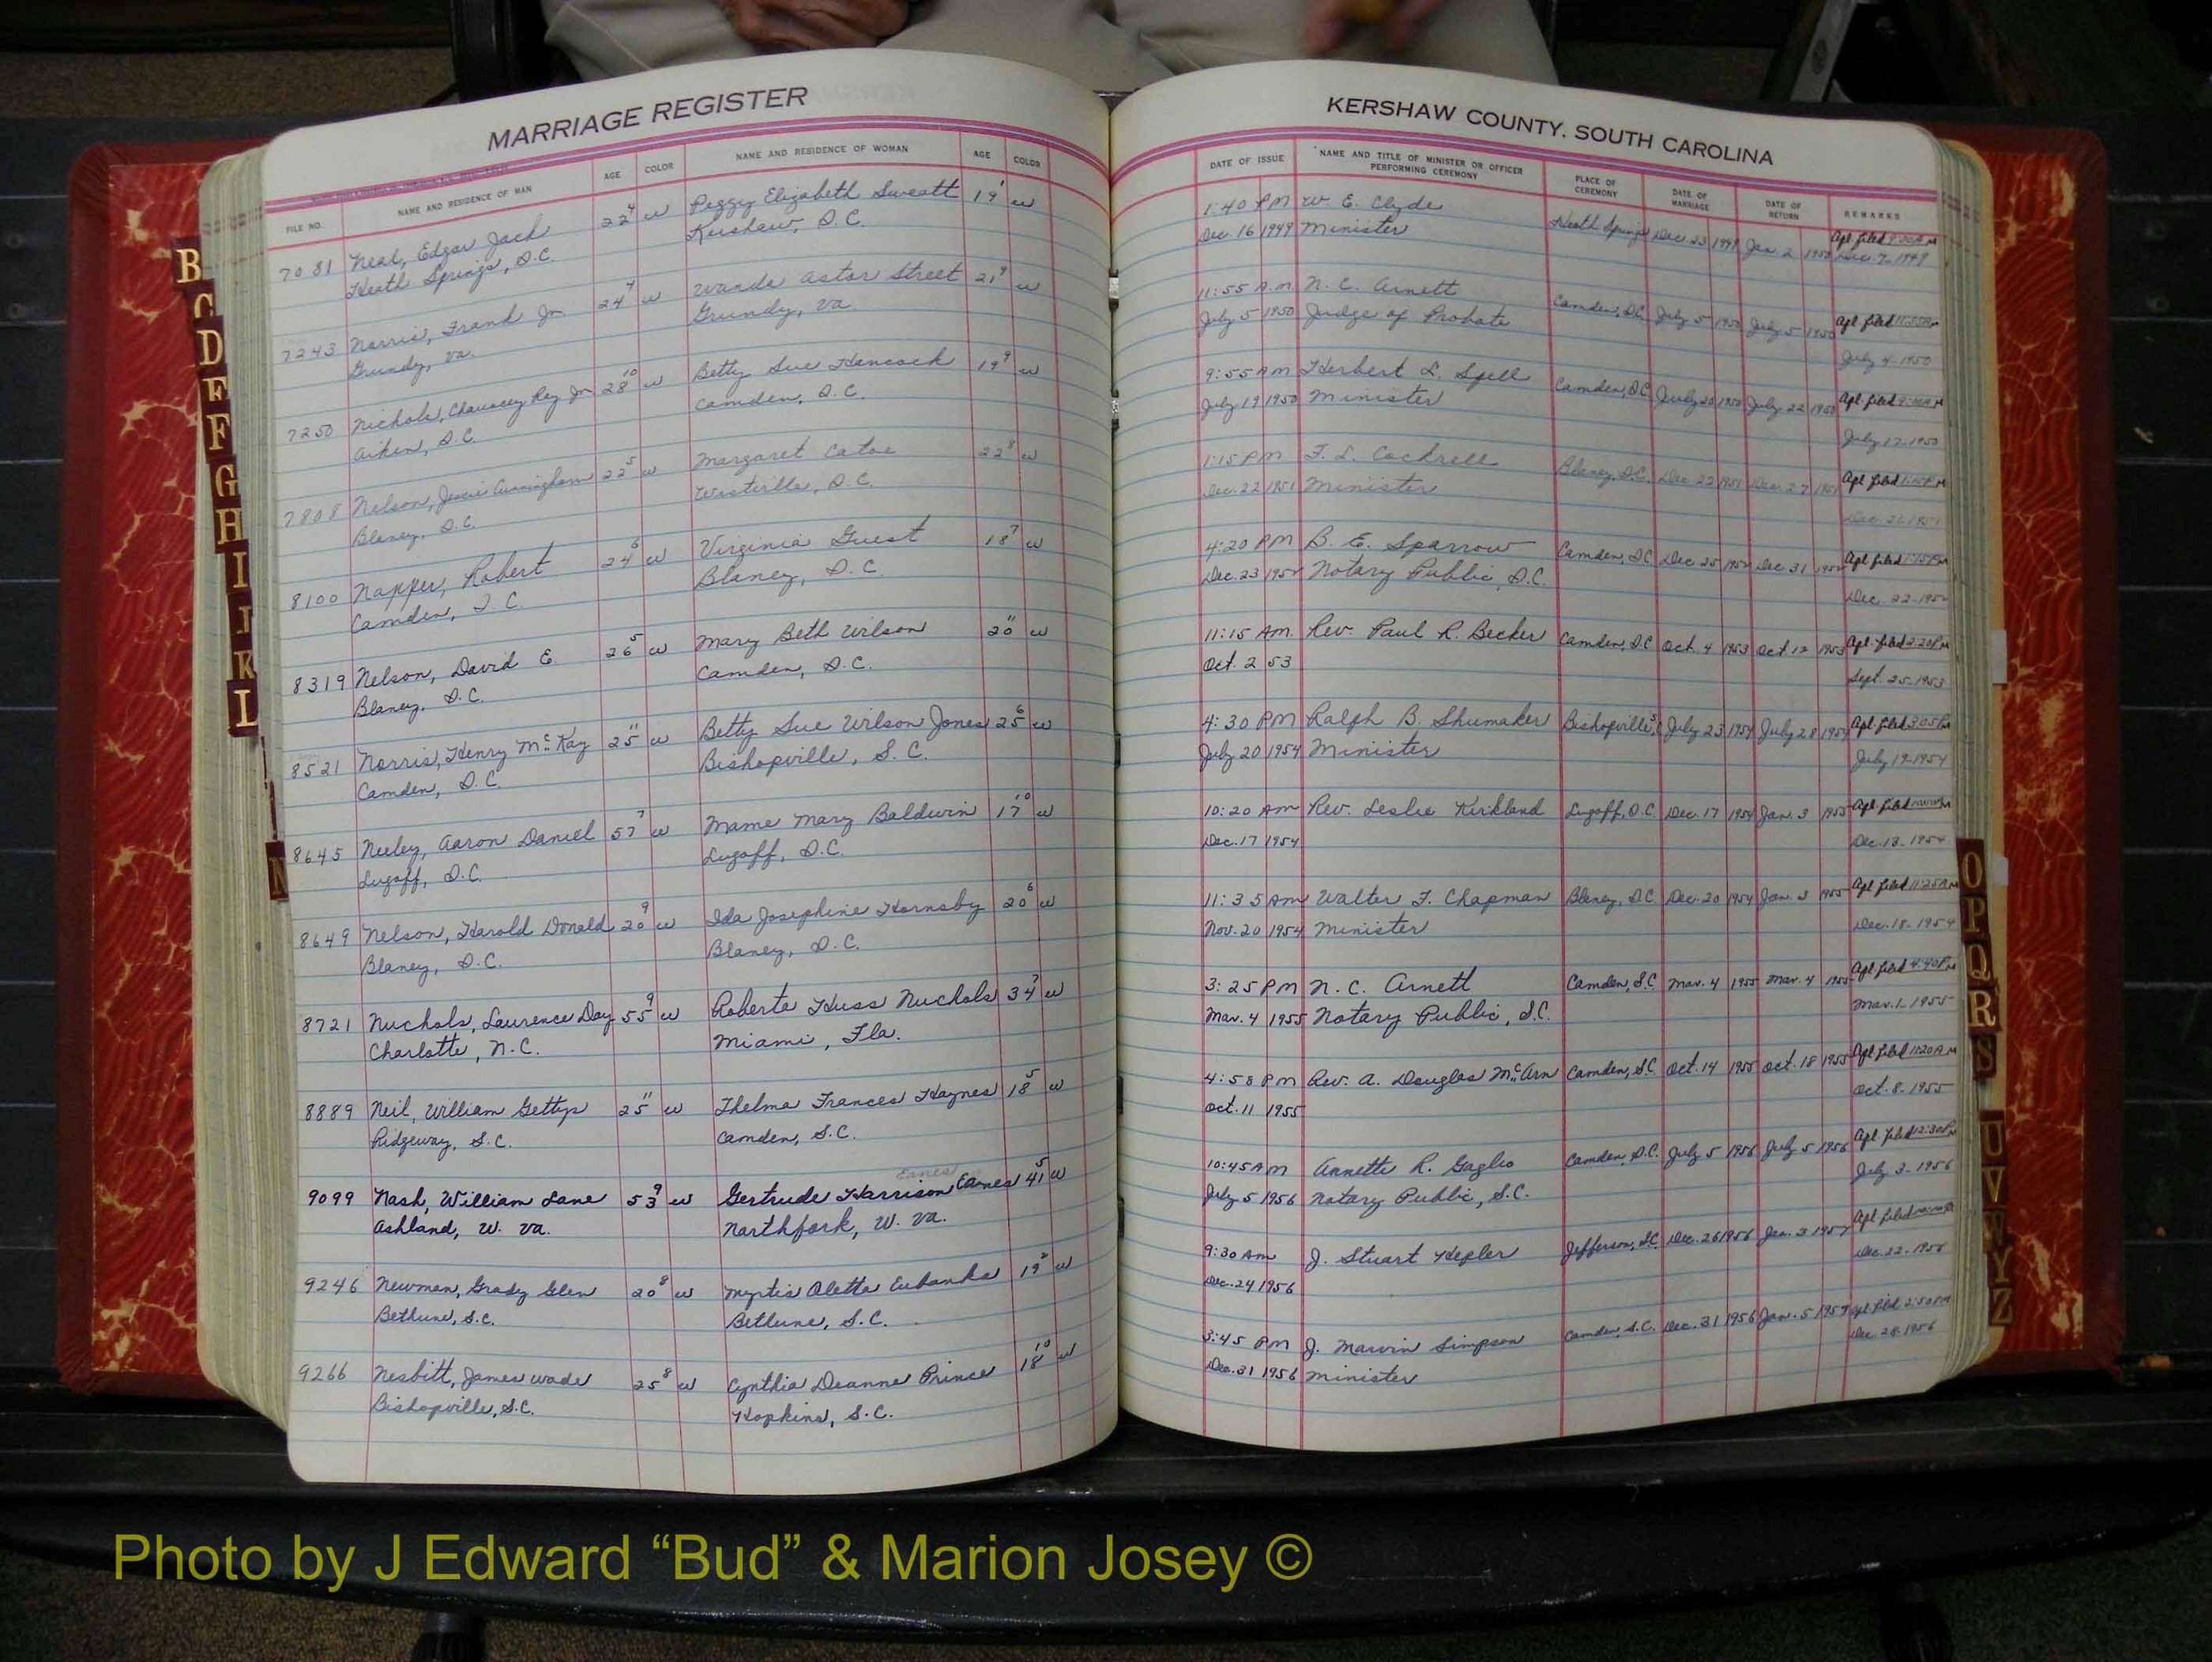 MARRIAGE REGISTER
FILE NO. NAME AND RESIDENCE OF MAN AGE COLOR NAME AND RESIDENCE OF WOMAN AGE COLOR
7081 Neal, Edgar Jack 22 4 w Peggy Elizabeth Sweatt 19 1 w
Heath Springs, S.C. Kershaw, S.C.
7243 Norris, Frank Jr 24 w Wanda Astor Street 21 9 w
Grundy, Va. Grundy, Va.
7250 Nichols, Chauncey Ray Jr 28 10 w Betty Sue Hancock 19 9 w
Aiken, S.C. Camden, S.C.
7808 Nelson, Jessie Cunningham 22 5 w Margaret Catoe 22 8 w
Blaney, S.C. Westville, S.C.
8100 Napper, Robert 24 6 w Virginia Guest 18 7 w
Camden, S.C. Blaney, S.C.
8319 Nelson, David E. 26 5 w Mary Beth Wilson 20 11 w
Blaney, S.C. Camden, S.C.
8521 Norris, Henry McKay 25 11 w Betty Sue Wilson Jones 25 6 w
Camden, S.C. Bishopville, S.C.
8645 Neeley, Aaron Daniel 57 7 w Mame Mary Baldwin 17 10 w
Lugoff, S.C. Lugoff, S.C.
8649 Nelson, Harold Donald 20 9 w Ida Josephine Hornsby 20 6 w
Blaney, S.C. Blaney, S.C.
8721 Nuchols, Laurence Day 55 9 w Roberta Huss Nuchols 34 7 w
Charlotte, N.C. Miami, Fla.
8889 Neil, William Gettys 25 11 w Thelma Frances Haynes 18 5 w
Ridgeway, S.C. Camden, S.C.
Eanes
9099 Nash, William Lane 53 9 w Gertrude Harrison Eanes 41 5 w
Ashland, W. Va. Northfork, W. Va.
9246 Newman, Grady Glen 20 8 w Myrtis Oletta Eubanks 19 2 w
Bethune, S.C. Bethune, S.C.
9266 Nesbitt, James Wade 25 8 w Cynthia Deanne Prince 18 10 w
Bishopville, S.C. Hopkins, S.C.
KERSHAW COUNTY, SOUTH CAROLINA
DATE OF ISSUE NAME AND TITLE OF MINISTER OR OFFICER PERFORMING CEREMONY PLACE OF CEREMONY DATE OF MARRIAGE DATE OF RETURN REMARKS
1:40 PM W. E. Clyde Heath Springs Dec. 23 1949 Jan 2 1950 Apl. filed
Dec. 16 1949 Minister Dec. 7-1949
11:55 A.M N. C. Arnett Camden, S.C. July 5 1950 July 5 1950 Apl. filed 11:55 AM
July 5 1950 Judge of Probate July 4-1950
9:55 AM Herbert L. Spell Camden, S.C. July 20 1950 July 22 1950 Apl. filed
July 19 1950 Minister July 17-1950
1:15 PM F. L. Cockrell Blaney, S.C. Dec. 22 1951 Dec. 27 1951 Apl. filed 1:15 PM
Dec. 22 1951 Minister Dec. 21-1951
4:20 PM B. E. Sparrow Camden, S.C. Dec 25 1952 Dec. 31 1952 Apl. filed 1:15 PM
Dec. 23 1952 Notary Public, S.C. Dec. 22-1952
11:15 AM. Rev. Paul R. Becker Camden, S.C Oct. 4 1953 Oct 12 1953 Apl. filed 2:20 PM
Oct. 2 53 Sept. 25-1953
4:30 PM Ralph B. Shumaker Bishopville, S.C. July 23 1954 July 28 1954 Apl. filed 3:05 PM
July 20 1954 Minister July 19-1954
10:20 AM Rev. Leslie Kirkland Lugoff, S.C. Dec. 17 1954 Jan. 3 1955 Apl. filed
Dec. 17 1954 Dec. 13-1954
11:35 AM Walter F. Chapman Blaney, S.C. Dec. 20 1954 Jan. 3 1955 Apl. filed 11:25 AM
Nov. 20 1954 Minister Dec. 18-1954
3:25 PM N. C. Arnett Camden, S.C. Mar. 4 1955 Mar. 4 1955 Apl. filed 4:40 PM
Mar. 4 1955 Notary Public, S.C. Mar. 1-1955
4:58 PM Rev. A. Douglas McArn Camden, S.C. Oct. 14 1955 Oct. 18 1955 Apl. filed 11:20 AM
Oct. 11 1955 Oct. 8-1955
10:45 AM Annette R. Gaglio Camden, S.C. July 5 1956 July 5 1956 Apl. filed 12:30 PM
July 5 1956 Notary Public, S.C. July 3-1956
9:30 AM J. Stuart Hepler Jefferson, S.C. Dec. 26 1956 Jan. 3 1957 Apl. filed
Dec. 24 1956 Dec. 22-1956
3:45 PM J. Marvin Simpson Camden, S.C. Dec. 31 1956 Jan. 5 1957 Apl. filed 2:50 PM
Dec. 31 1956 Minister Dec. 28-1956
B
C
D
E
F
G
H
I
J
K
L
N
O
P
Q
R
S
U
V
W
Y
Z
Photo by J Edward “Bud” & Marion Josey ©